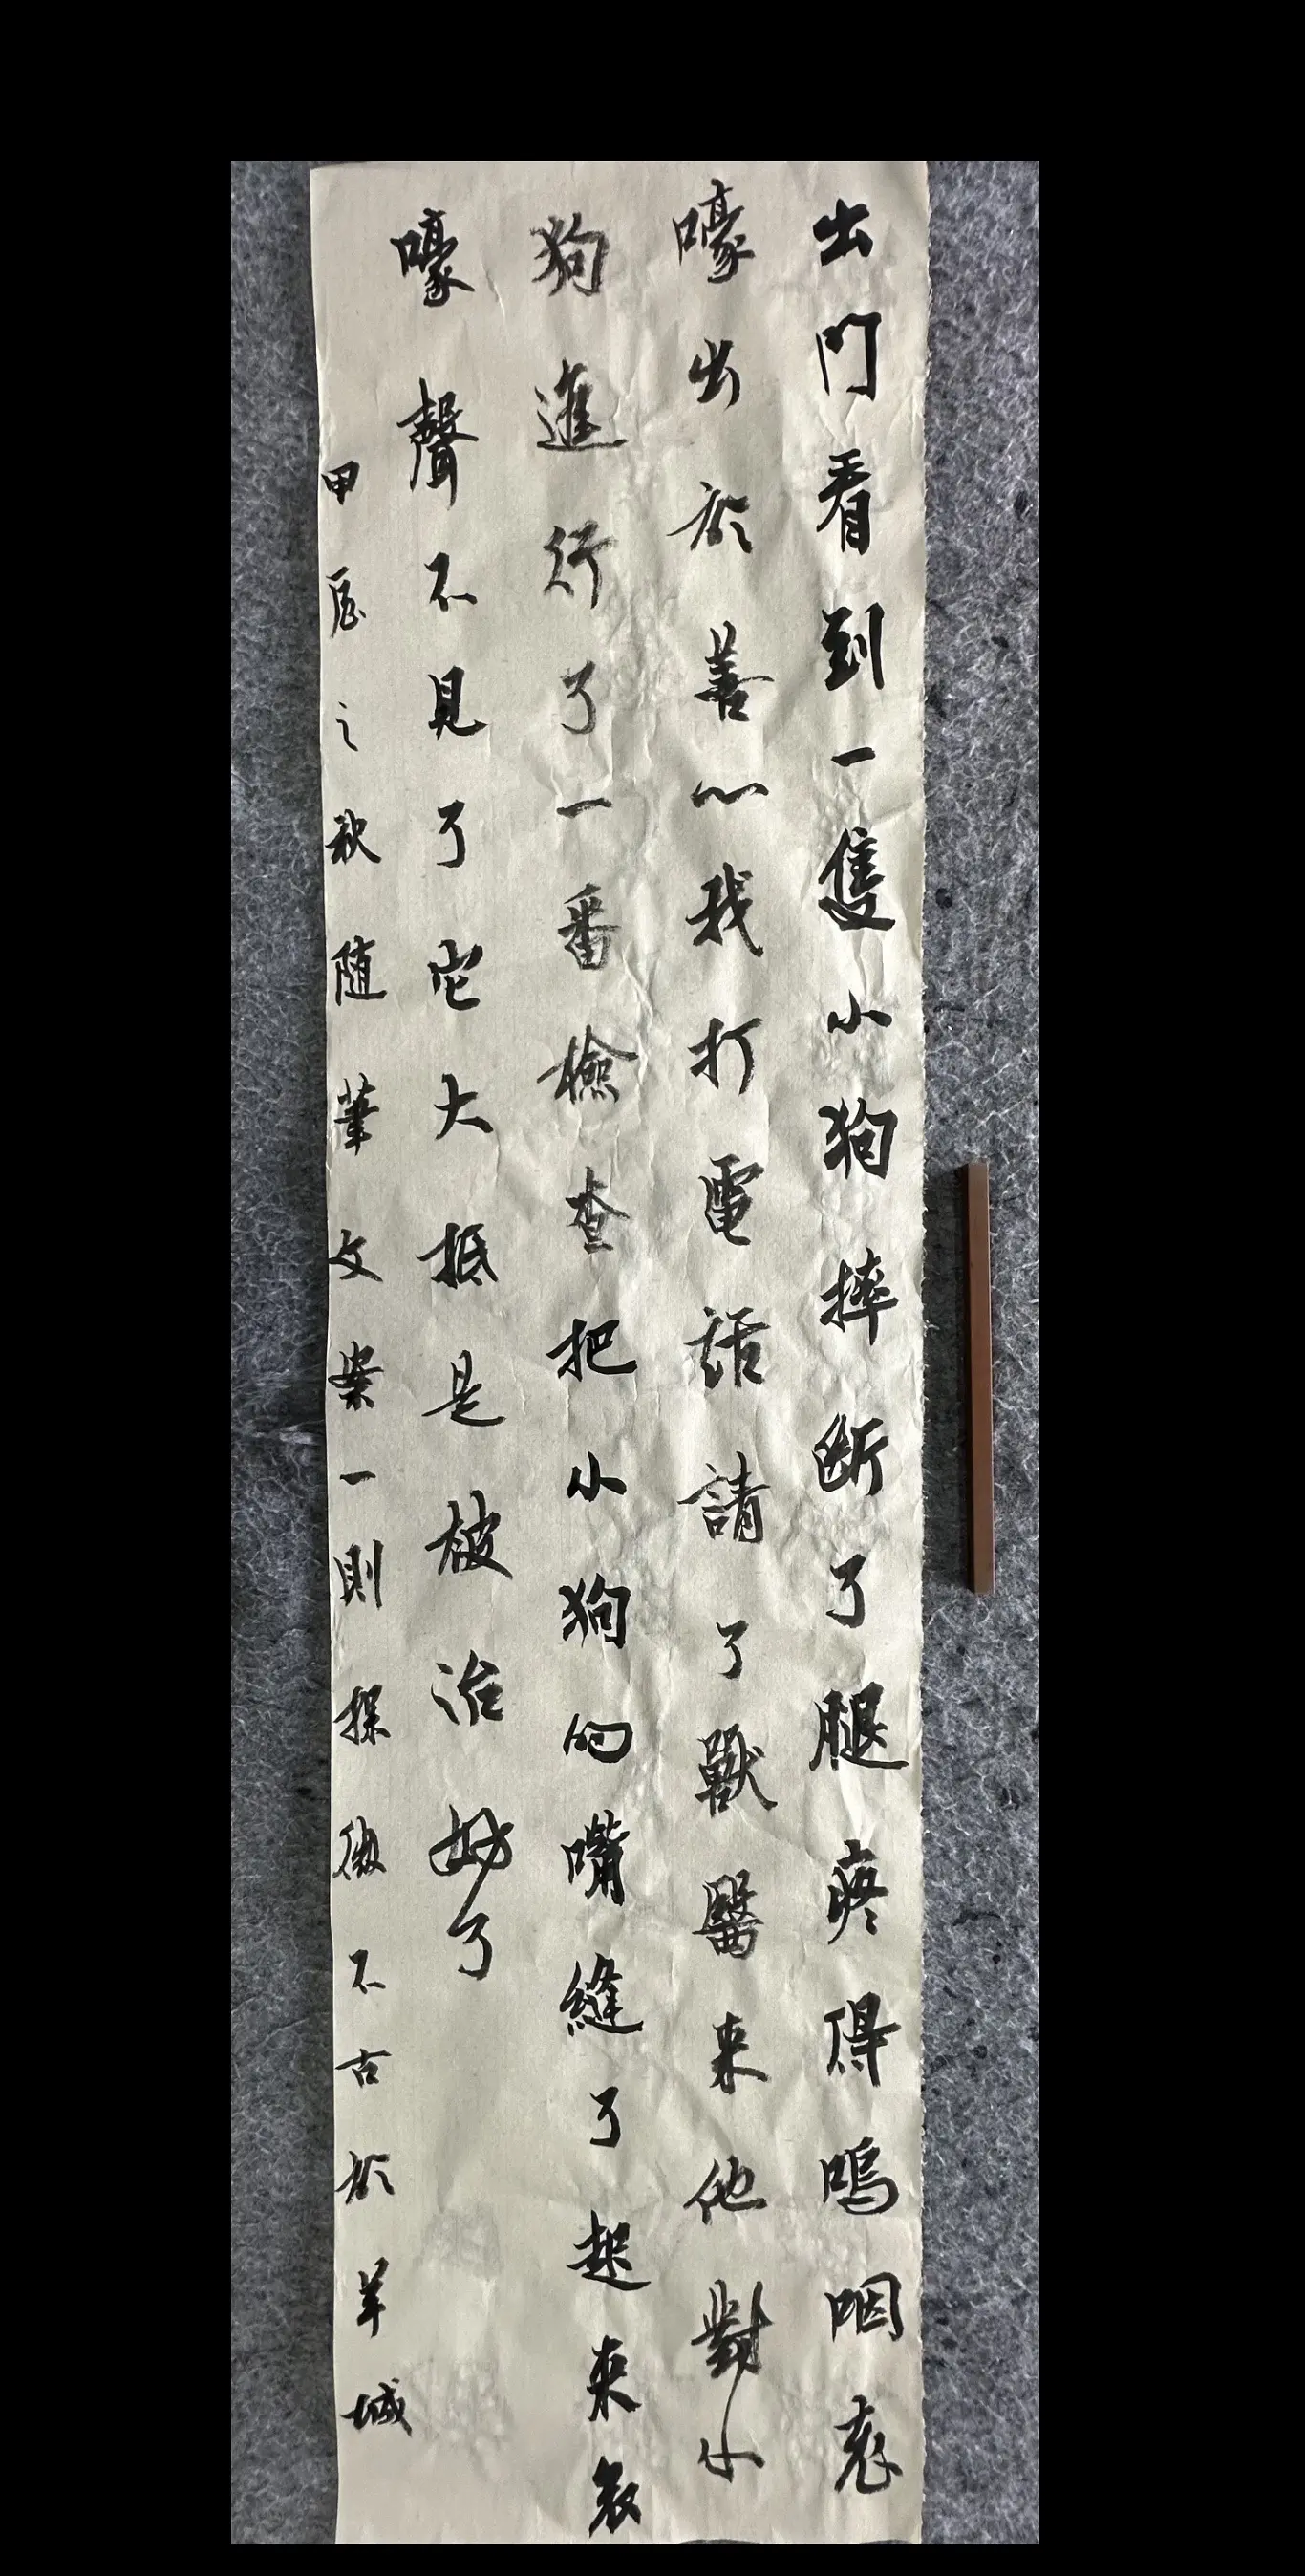 出門看到一隻小狗摔斷了腿疼得嗚咽哀
嚎出於善心我打電話請了獸醫来他對小
狗進行了一番檢查把小狗的嘴縫了起来哀
嚎聲不見了它大抵是被治好了
甲辰之秋随筆文案一則探微不古於羊城